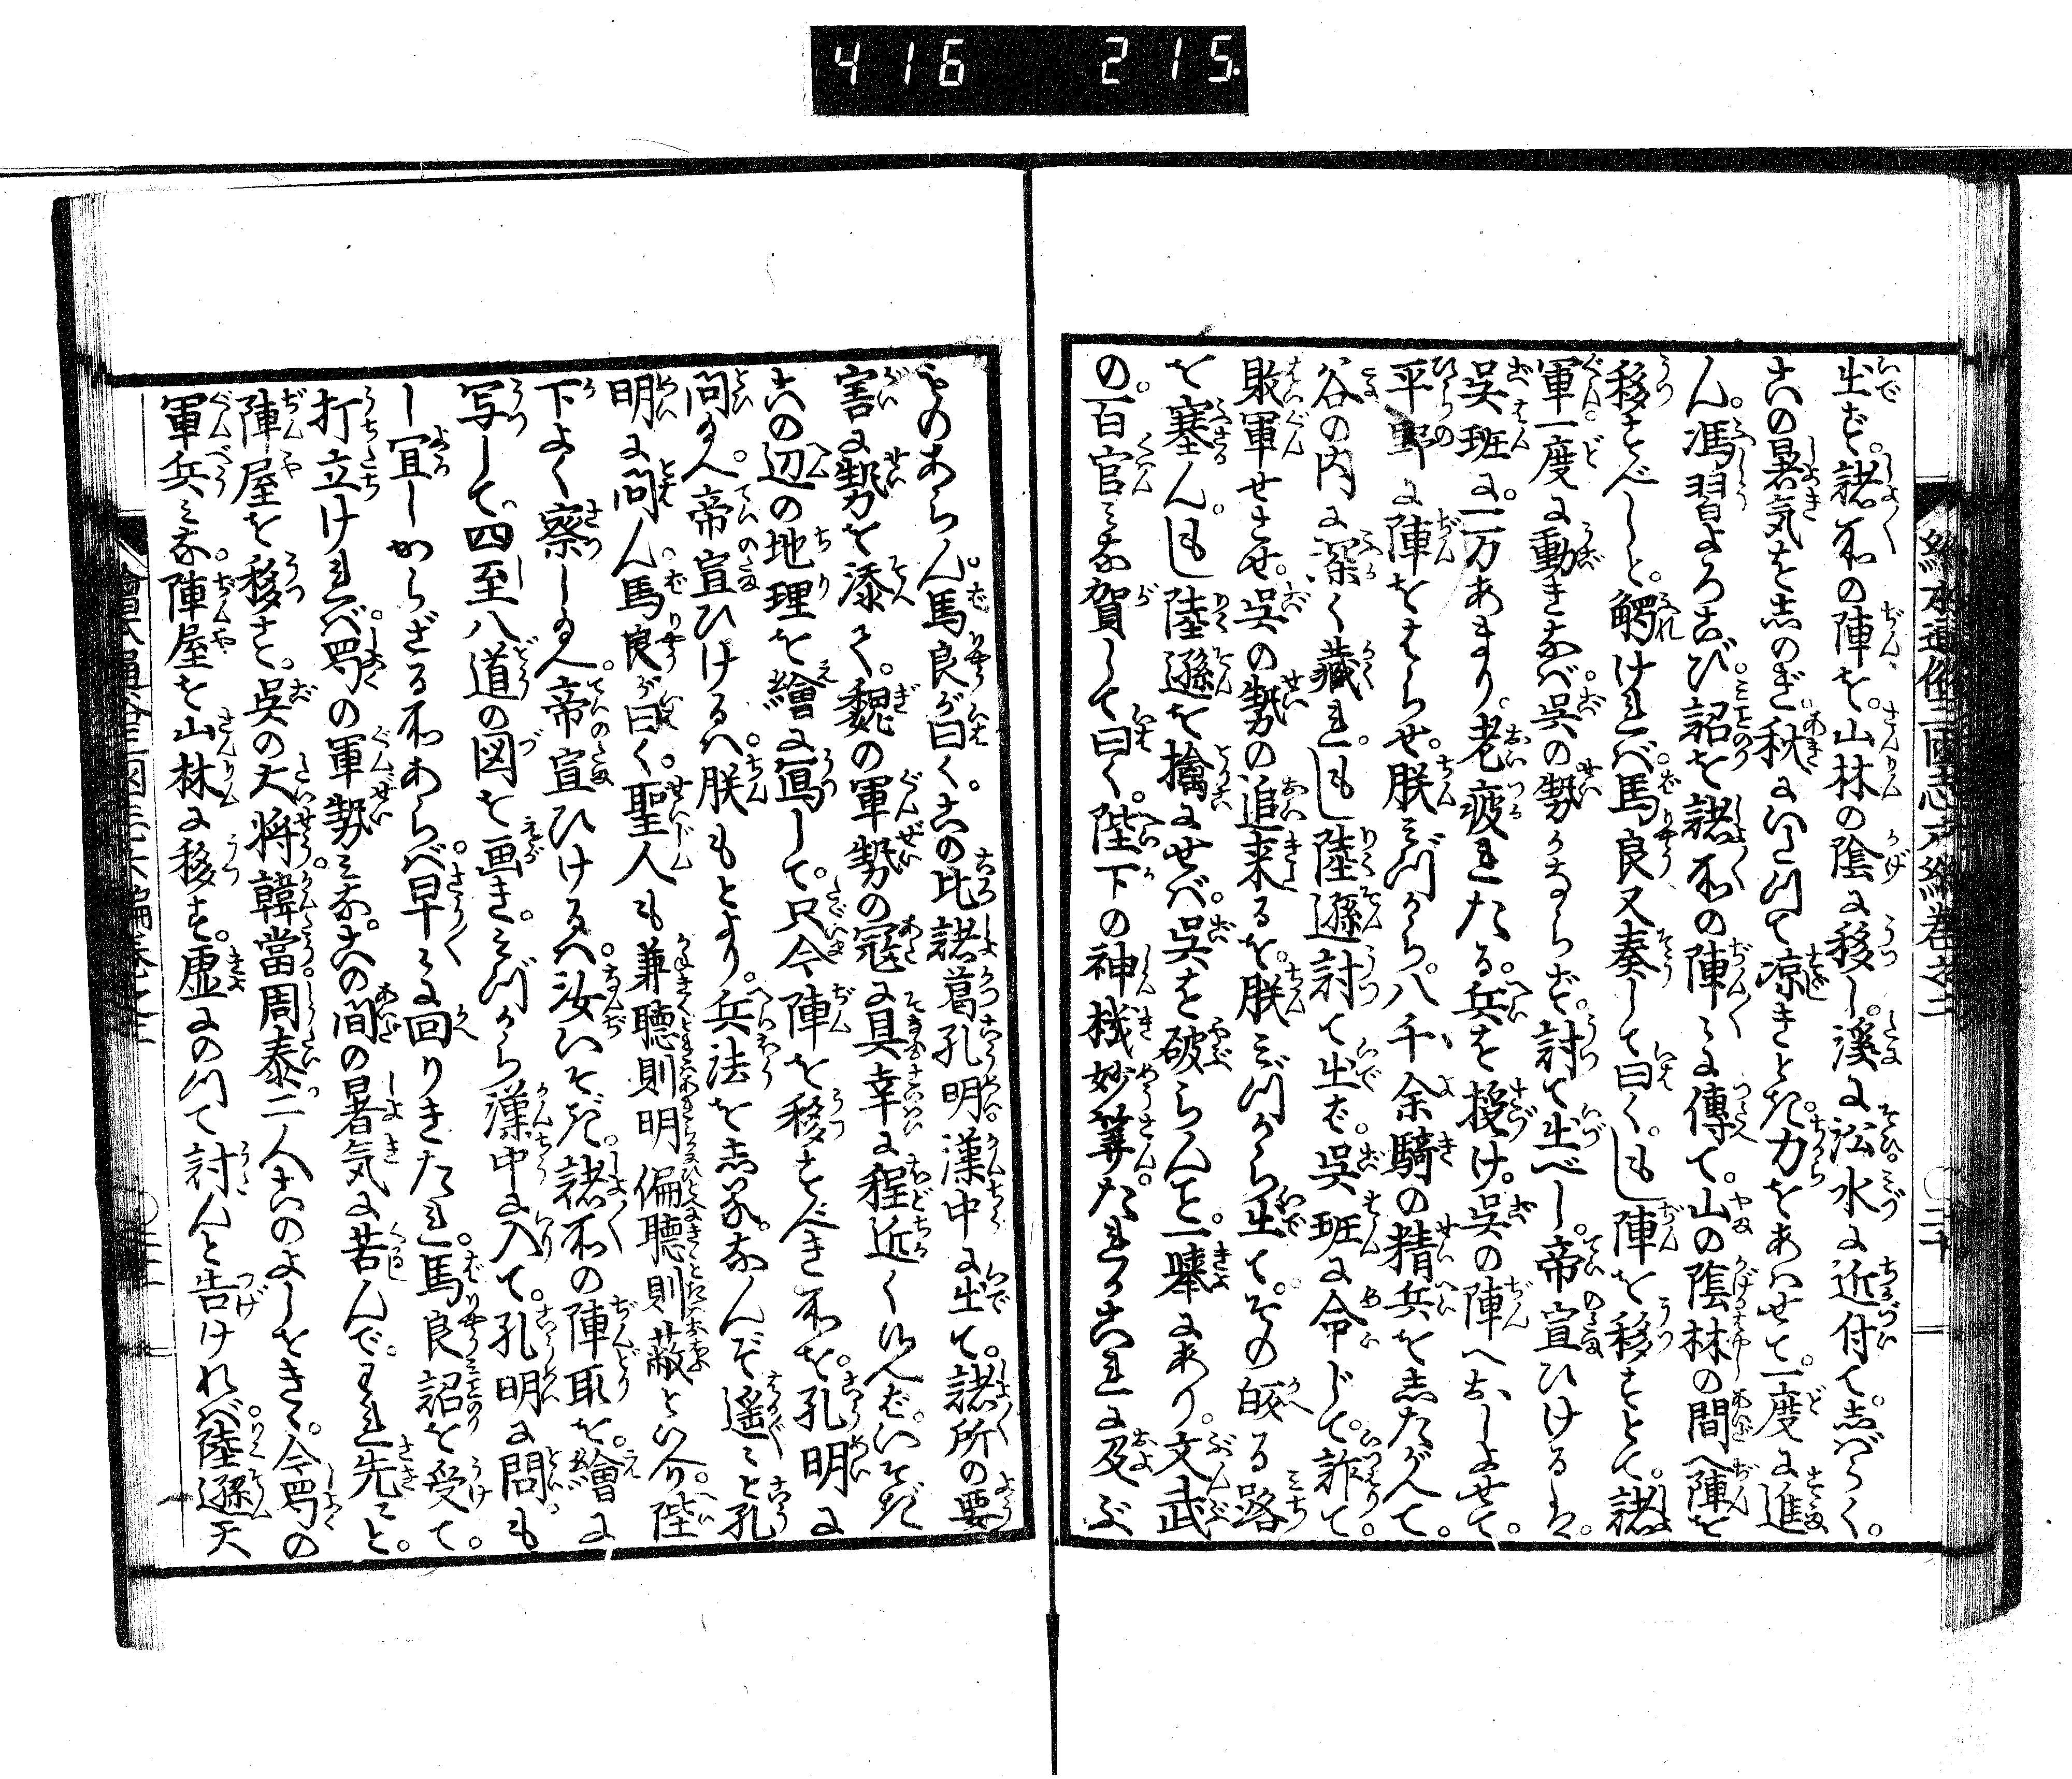 416 215.
出ず。諸所の陣を。山林の陰に移し。渓に沿水に近付て。しばらく。
この暑気をしのぎ。秋にいたつて涼きとき。力をあハせて。一度に進
ん。馮習よろこび。詔を諸所の陣々に傳て。山の陰林の間へ陣を
移すべしと。觸けれバ。馬良又奏して曰く。もし陣を移すとて。諸
軍一度に動きなバ。呉の勢かならず。討て出べし。帝宣ひけるハ。
呉班に。一万あまり。老疲れたる。兵を授け。呉の陣へおしよせて。
平野に陣をはらせ。朕ミづから。八千余騎の精兵をしたがへて。
谷の内に深く藏れ。もし陸遜討て出ば。呉班に命じて。詐て。
敗軍せさせ。呉の勢の追来るを。朕ミづから出て。その皈る路
を塞ん。もし陸遜を擒にせバ。呉を破らんこと。一擧にあり。文武
の。百官ミな賀して曰く。陛下の神機妙算。たれかこれに及ぶ
ものあらん。馬良が曰く。この比諸葛孔明漢中に出て。諸所の要
害に勢を添て。魏の軍勢の寇に具。幸に程近く候へば。いそぎ
この辺の地理を繪に寫して。只今陣を移すべき所を。孔明に
問給へ。帝宣ひけるハ。朕もとより。兵法をしる。なんぞ遙々と孔
明に問ん。馬良が曰く。聖人も兼聽則明偏聽則蔽といへり。陛
下よく察し給へ。帝宣ひけるハ。汝いそぎ。諸所の陣取を。繪に
写して。四至八道の図を画き。ミづから漢中に入て。孔明に問も
し宜しからざる所あらバ。早々に回りきたれ。馬良詔を受て。
打立けれバ。蜀の軍勢ミな。この間の暑気に苦んで。われ先にと。
陣屋を移す。呉の大将。韓當。周泰二人このよしをきゝ。今蜀の
軍兵ミな。陣屋を山林に移す。虚にのつて討んと告けれバ。陸遜天